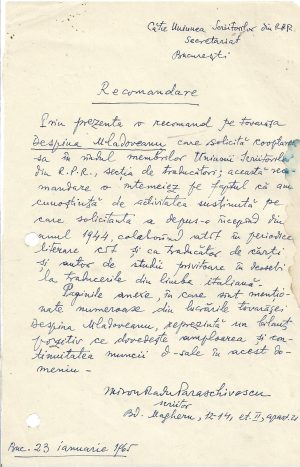 Către Uniunea Scriitorilor din R.P.R.
Secretariat
București
Recomandare
Prin prezenta o recomand pe tovarășa
Despina Mladoveanu care solicită cooptarea
sa în rîndul membrilor Uniunii Scriitorilor
din R.P.R., secția de traducători; această reco-
mandare o întemeiez pe faptul că am
cunoștință de activitatea susținută pe
care solicitanta a depus-o începînd din
anul 1944, colaborînd atît în periodice
literare cît și ca traducător de cărți
și autor de studii privitoare în deosebi
la traducerile din limba italiană.
Paginile anexe, în care sînt mențio-
nate numeroase din lucrările tovarășei
Despina Mladoveanu, reprezintă un bilanț
pozitiv ce dovedește amploarea și con-
tinuitatea muncii d-sale în acest do-
meniu –
Miron Radu Paraschivescu
scriitor
Bd. Magheru, 12-14, et. II, apart. 21
Buc. 23 ianuarie 1965